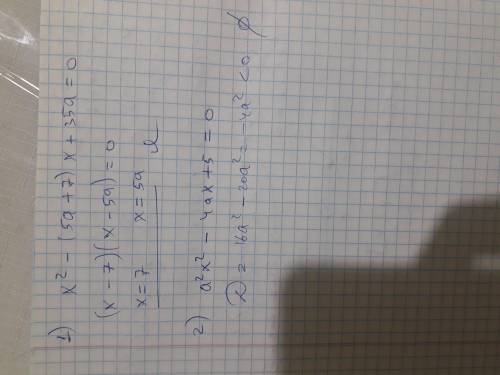 1) x² - (5a+7)x + 35a = 0
(x - 7)(x - 5a) = 0
x = 7 x = 5a
2) a²x² - 4ax + 5 = 0
D = 16a² - 20a² = -4a² < 0 ∅